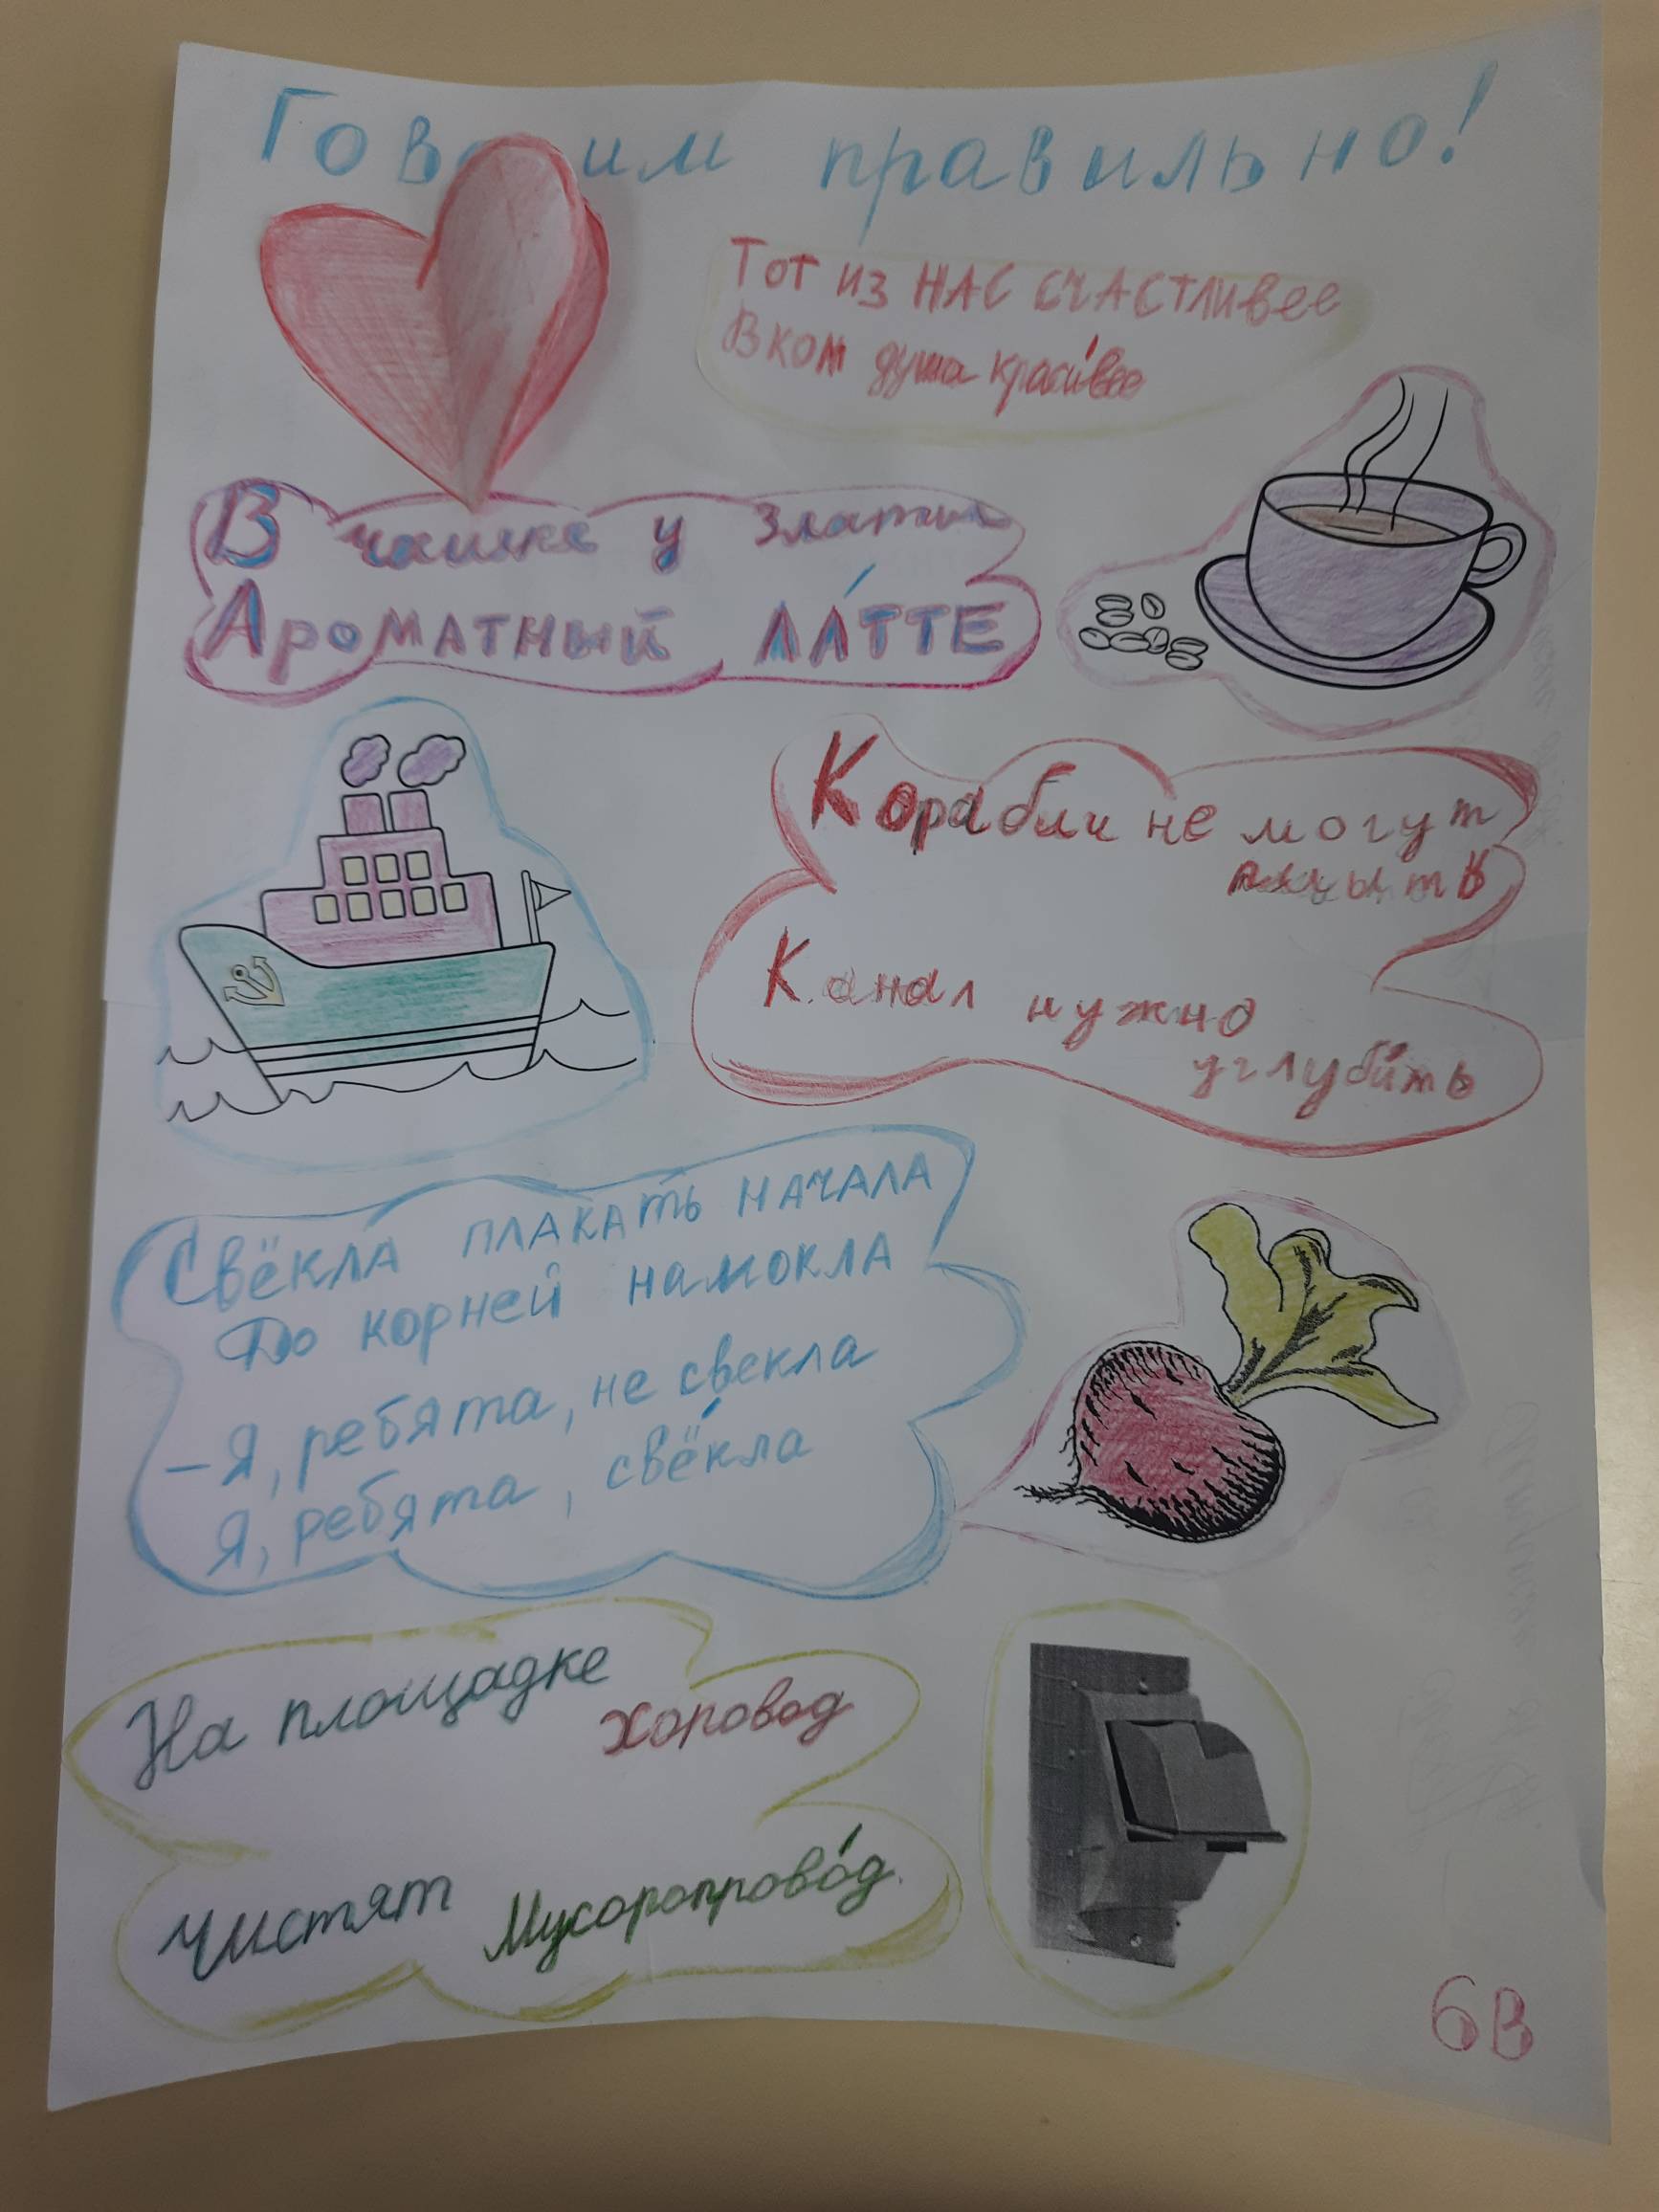 Говорим правильно!
Тот из НАС СЧАСТЛИВее
В ком душа краси́вее
В чашке у Златы
Ароматный ЛА́ТТЕ
Корабли не могут
плыть
Канал нужно
углуби́ть
Свёкла плакать начала
До корней намокла
- Я, ребята, не свекла
Я, ребята, свёкла
На площадке
хоровод
Чистят Мусоропрово́д.
6В